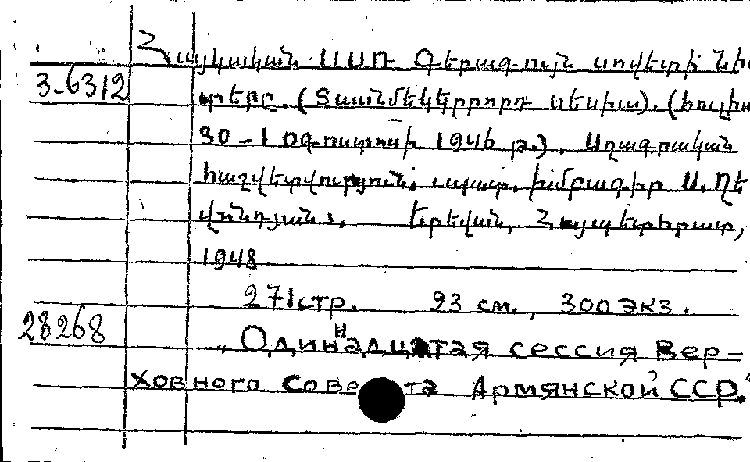 Հայկական ՍՍՌ Գերագույն սովետի նիս
3-6312 տերը. (Տասնմեկերրորդ սեսիա). (հուլիս
30-1 օգոստոսի 1946 թ.). Սղագրական
հաշվետվություն. պատ. խմբագիր Ս. Ղե
վոնդյանս. Երեվան, Հայպետհրատ,
1948
271 стр. 93 см., 300 экз.
28268 „Одиннадцатая сессия Вер-
ховного Совета Армянской ССР."